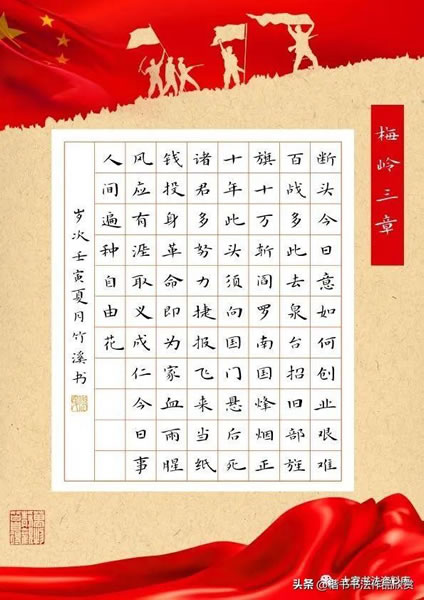 梅岭三章
断头今日意如何创业艰难
百战多此去泉台招旧部旌
旗十万斩阎罗南国烽烟正
十年此头须向国门悬后死
诸君多努力捷报飞来当纸
钱投身革命即为家血雨腥
风应有涯取义成仁今日事
人间遍种自由花
岁次壬寅夏月竹溪书
头条 @楷书书法作品欣赏